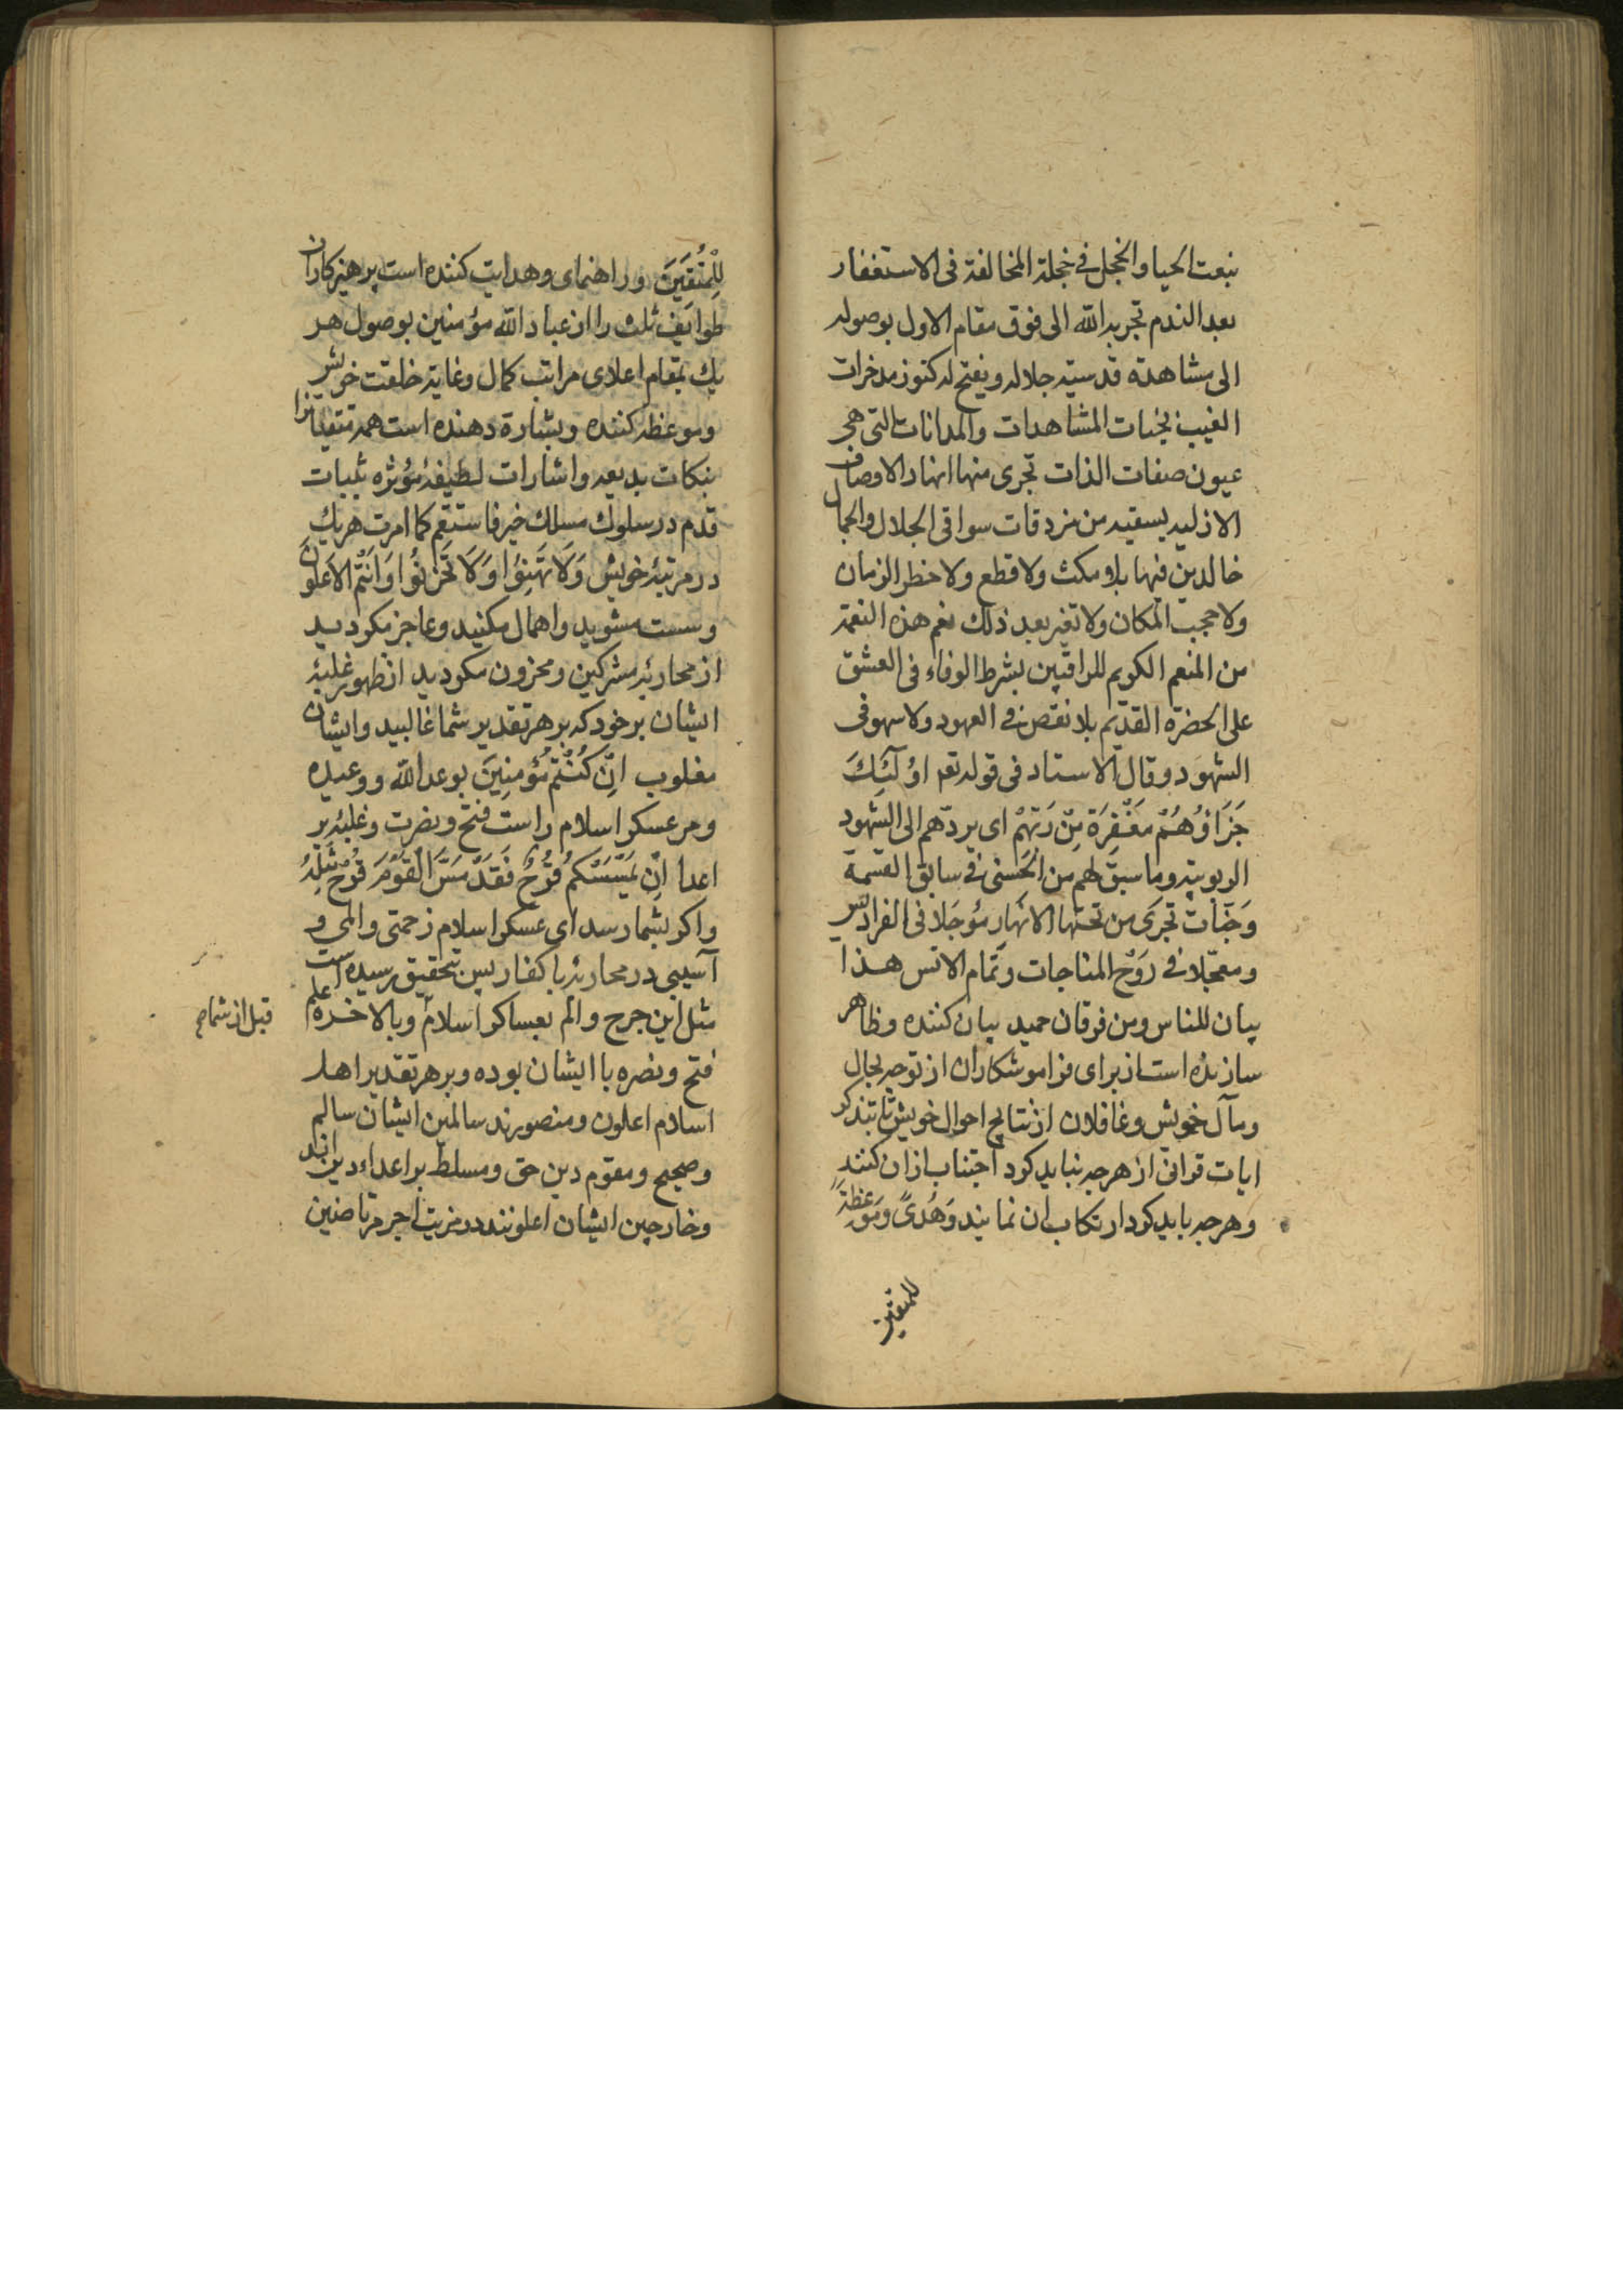 بنعت الحيا والخجل فى خجلة المخالفة فى الاستغفار
بعد الندم تجربه الله الى فوق مقام الاول بوصوله
الى مشاهدة قدسيته جلاله ويفتح له كنوز مدخرات
الغيب بجنات المشاهدات والمدانات التى هى
عيون صفات الذات تجرى منها انهار الاوصاف
الازليه يسقيه من سواقى الجلال والجمال
خالدين فيها بلا مكث ولا قطع ولا خطر الزمان
ولا حجب المكان ولا تغير بعد ذلك نعم هذه النعمة
من المنعم الكريم للراقبين بشرط الوفاء فى العشق
على الحضرة القديم بلا نقص فى العهود ولا سهو فى
الشهود وقال الاستاد فى قوله تع اوُلَئِكَ
جَزَاؤُهُمْ مَغْفِرَة مِّنْ رَبِّهِمْ اى يردّهم الى الشهود
الربوبيّه وما سبق لهم من الحُسنى فى سابق القسمة
وَجَنّاتٌ تجرَى من تحتها الانهَارِ مؤجَلا فى الفراديس
ومعجّلا فى رَوْح المناجات وتمام الانس هذا
بيان للناس ومن فرقان حميد بيان كننده وظاهر
سازنده است از براى فراموشكاران از توجه بحال
ومآل خويش وغافلان از نتايج احوال خويش تا بتذكر
ايات قرانى از هرچه نبايد كرد اجتناب ازان كنند
وهرچه بايد كرد ارتكاب ان نمايند وَهُدىً وَمَوْعظَةً
للمتقين
لِلْمُتَّقِيَنَ وراهنماى وهدايت كننده است پرهيزكاران
طوايف ثلث را از عباد الله مؤمنين بوصول هر
يك بمقام اعلاى مراتب كمال وغاية خلقت خويش
وموعظه كننده وبشارة دهنده است همه متقيانرا
بنكات بديعه واشارات لطيفۀ مؤثره بثبات
قدم در سلوك مسلك خير فاستقم كما امرت هر يك
در مرتبۀ خويش وَلَا تَهِنُوا وَلَا تَحْزَنُوا وَاَنْتُمُ الاَعْلَوْنَ
وسست مشويد واهمال مكنيد وعاجز مكرديد
از محاربۀ مشركين ومحزون مكرديد از ظهور غلبۀ
ايشان برخود كه بر هر تقدير شما غالبيد وايشان
مغلوب اِنْ كُنْتُمْ مُؤْمِنِينَ بوعد الله ووعيده
ومر عسكر اسلام راست فتح ونصرت وغلبۀ بر
اعدا اِنْ يَمْسَسْكُمْ قَرْحٌ فَقَدْ مَسَّ الْقَوْمَ قَرْحٌ مِثْلُهُ
واكر بشما رسد اى عسكر اسلام زحمتى والمى و
آسيبى در محاربۀ با كفار پس بتحقيق رسيده است
مثل اين جرح والم بعساكر اسلام وبالاخره
قبل از شما صح
فتح ونصره با ايشان بوده وبر هر تقدير اهل
اسلام اعلون ومنصورند سالمين ايشان سالم
وصحيح ومقوم دين حق ومسلط بر اعداء دين اند
وخارجين ايشان اعلونند در مزيت اجر